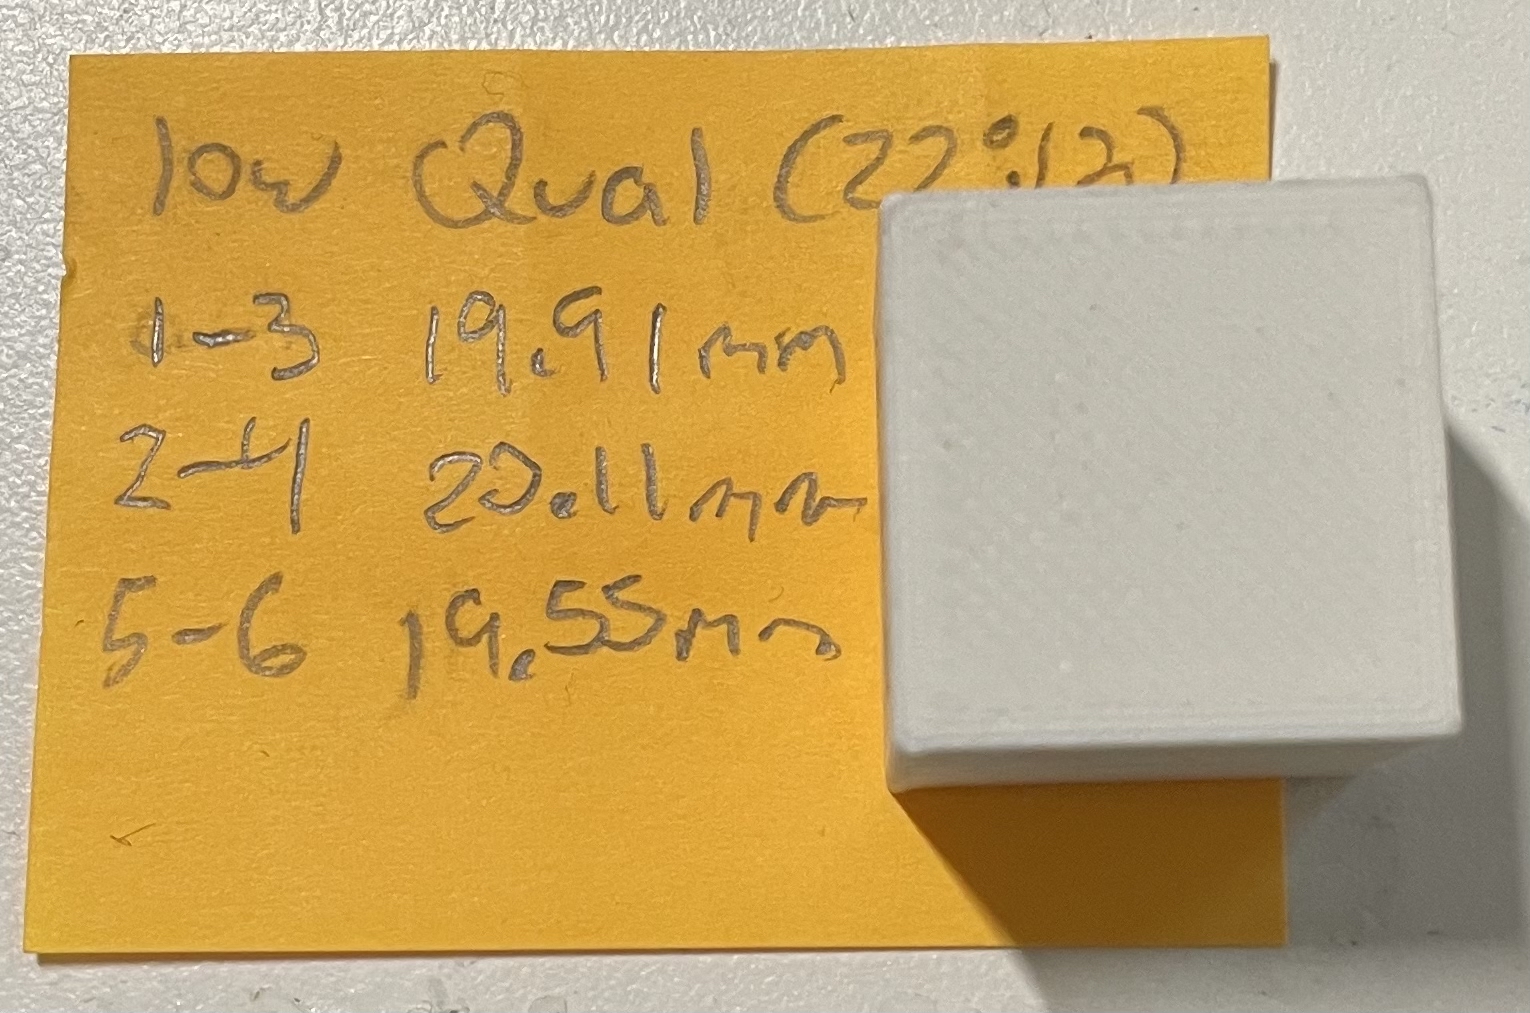 low Qual (22:12)
1-3 19.91mm
2-4 20.11mm
5-6 19.55mm